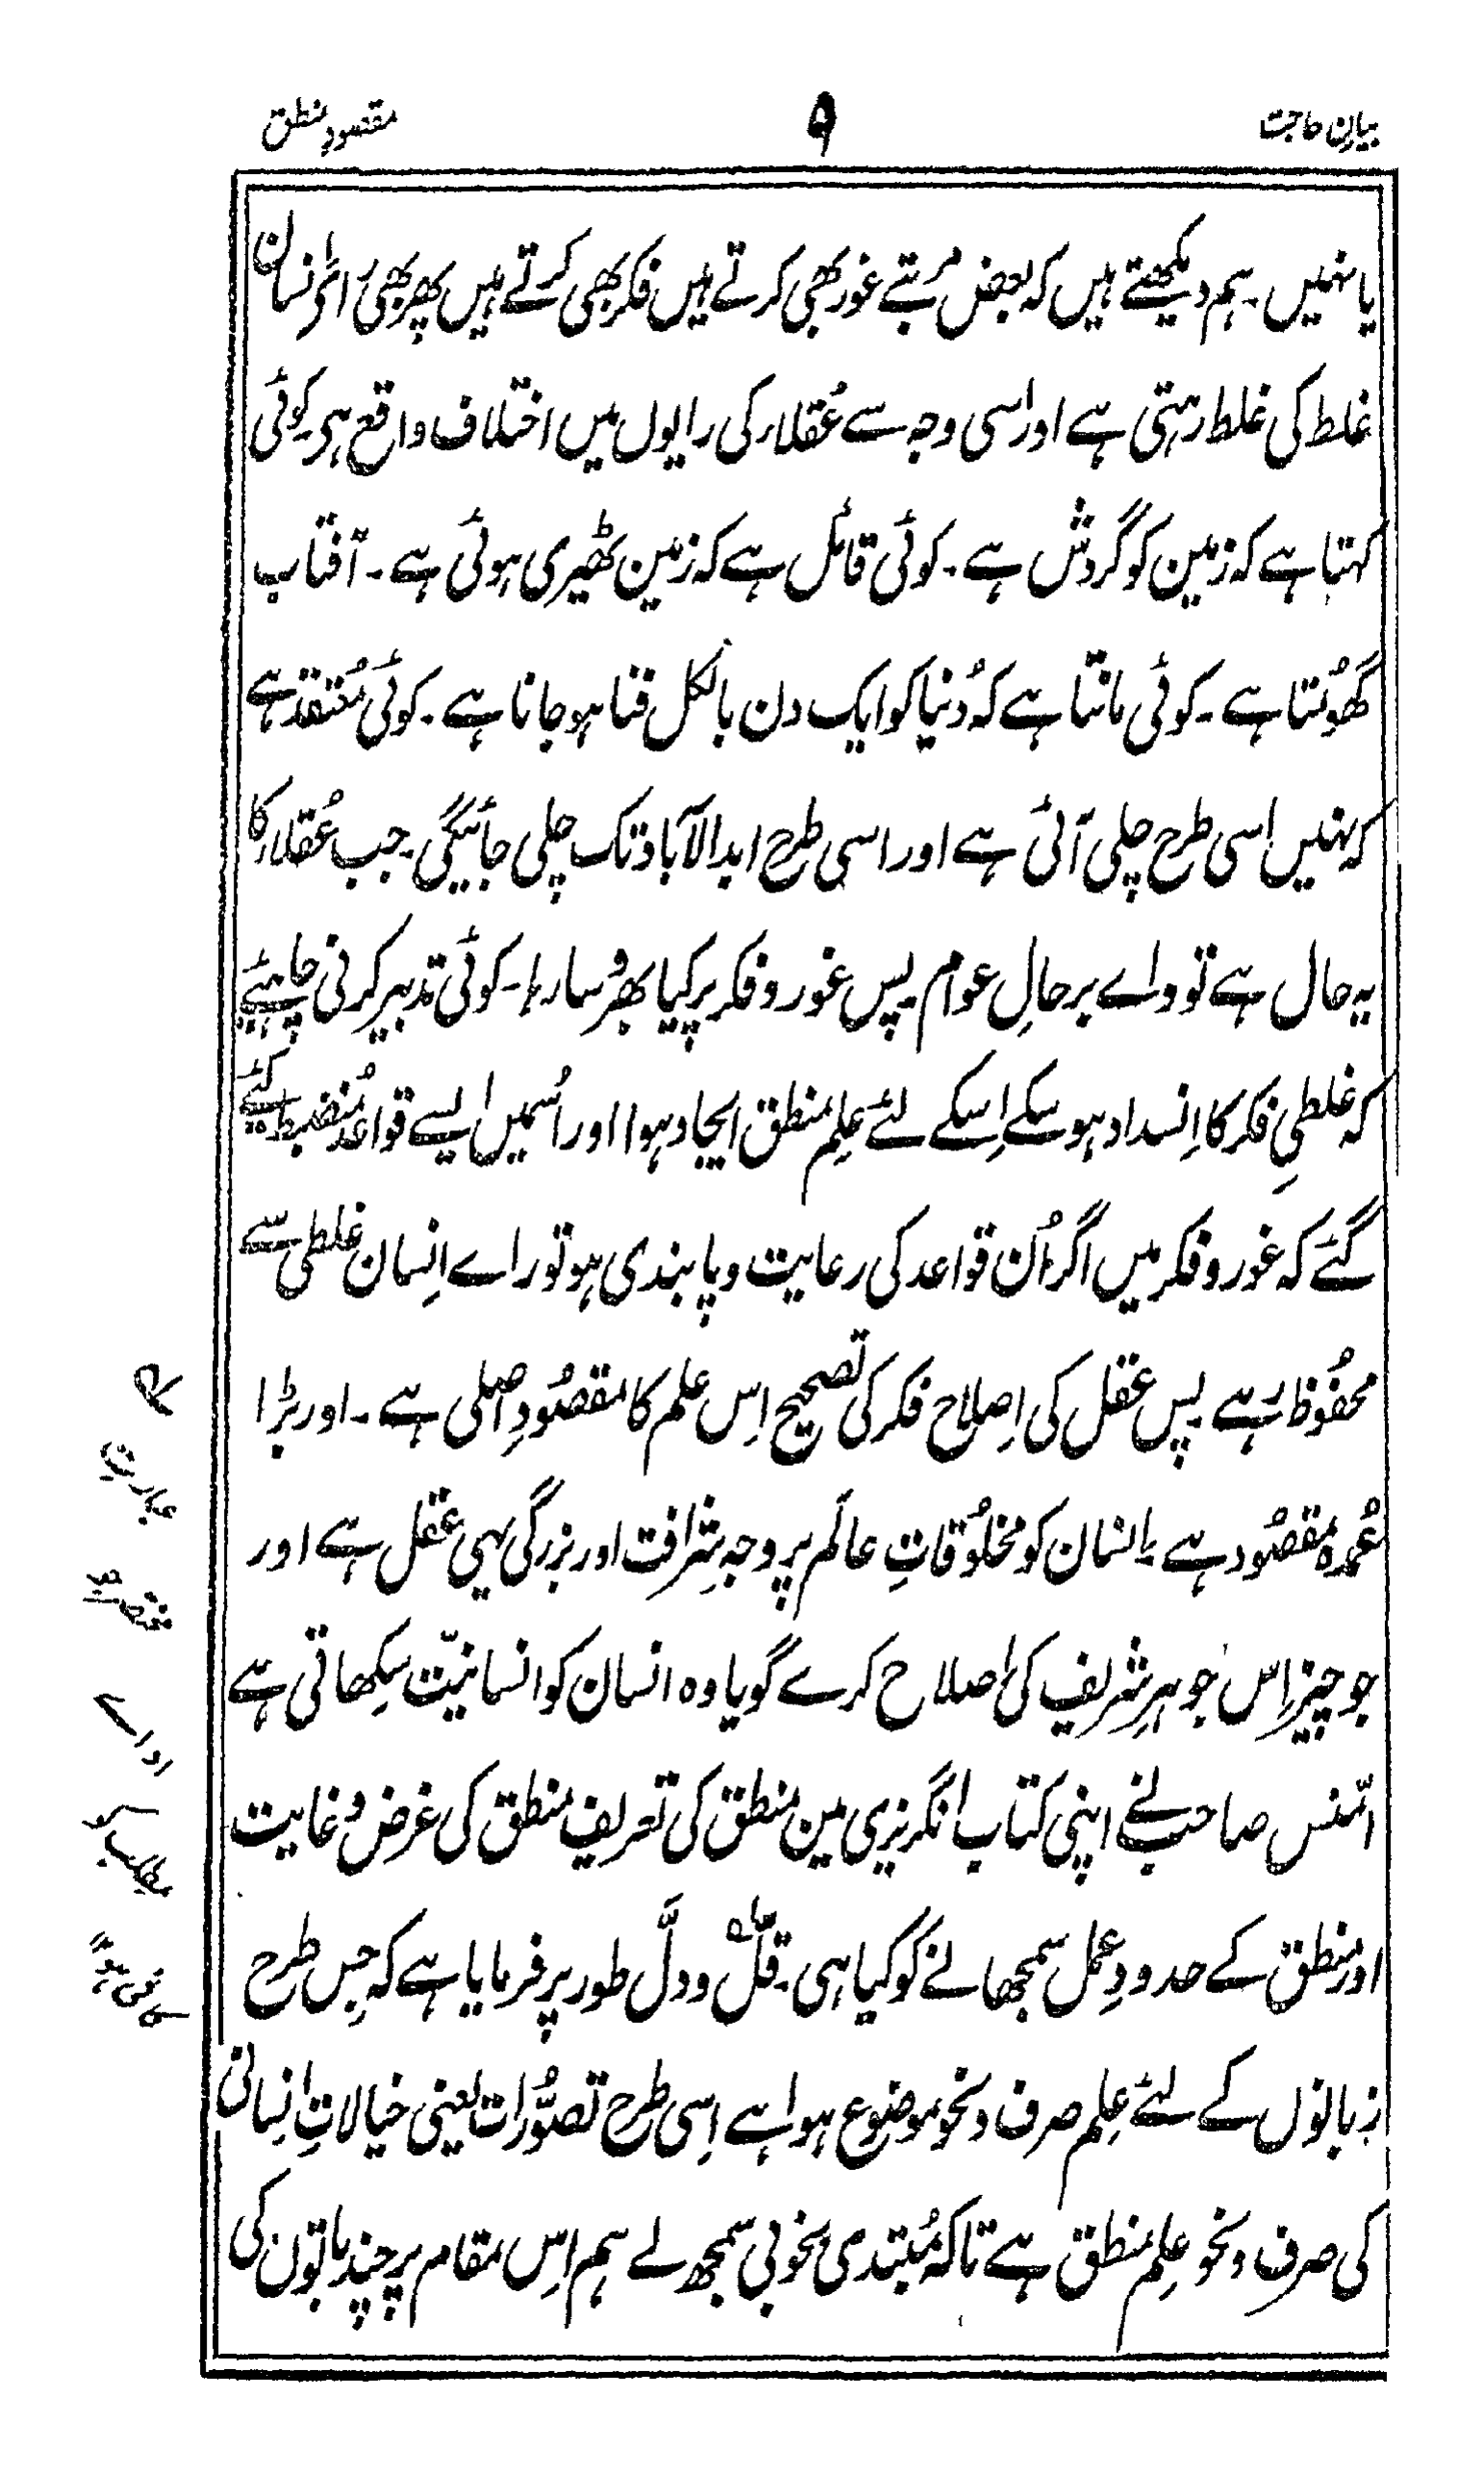 بیانِ حاجت
۹
مقصودِ منطق
یا نہیں۔ ہم دیکھتے ہیں کہ بعض مرتبے غور بھی کرتے ہیں فکر بھی کرتے ہیں پھر بھی رائے انسان
غلط کی غلط رہتی ہے اور اسی وجہ سے عُقلاء کی رایوں میں اختلاف واقع ہی۔ کوئی
کہتا ہے کہ زمین کو گردش ہے۔ کوئی قائل ہے کہ زمین ٹھیری ہوئی ہے۔ آفتاب
گھُومتا ہے۔ کوئی مانتا ہے کہ دُنیا کو ایک دن بالکل فنا ہو جانا ہے۔ کوئی مُعتقد ہے
کہ نہیں اسی طرح چلی آئی ہے اور اسی طرح ابد الآباد تک چلی جائیگی۔ جب عُقلاء کا
یہ حال ہے تو واے بر حالِ عوام۔ پس غور و فکر پر کیا بھروسا رہا۔ کوئی تدبیر کرنی چاہیئے
کہ غلطیِ فکر کا اِنسداد ہو سکے اِسکے لئے علِم منطق ایجاد ہوا اور اُسمیں ایسے قواعد مُنضبط کیئے
گئے کہ غور و فکر میں اگر اُن قواعد کی رعایت و پابندی ہو تو راے اِنسان غلطی سے
محفُوظ رہے۔ پس عقل کی اِصلاح فکر کی تصحیح اِس علم کا مقصُودِ اصلی ہے۔ اور بڑا
عُمدہ مقصُود ہے۔ اِنسان کو مخلُوقاتِ عالَم پر وجہِ شرافت اور بزرگی یہی عقل ہے اور
جو چیز اِس جوہرِ شریف کی اصلاح کرے گویا وہ انسان کو انسانیّت سِکھاتی ہے
اٹمنس صاحب نے اپنی کتاب انگریزی مین منطق کی تعریف منطق کی غرض و غایت
اور منطق کے حدودِ عمل سمجھانے کو کیا ہی۔ قلّ و دلَّ طور پر فرمایا ہے کہ جِس طرح
زبانوں کے لئے علِم صرف و نحو موضوع ہوا ہے اِسی طرح تصوُّرات یعنی خیالاتِ اِنسانی
کی صرف و نحو علِم منطق ہے تاکہ مُبتدی بخوبی سمجھ لے ہم اِس مقام پر چند باتون کی
عبارتِ
مختصر جو
اداے
مطلب کو